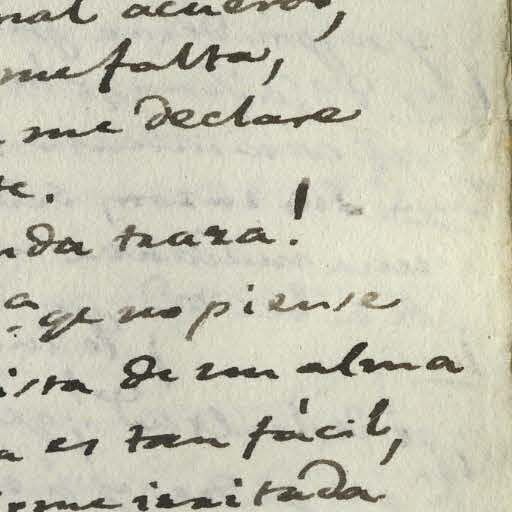 mal acuerdo,
me falta,
me declare
te.
nda traza!
a qe no piense
ista de un alma
a es tan fácil,
rme irritada